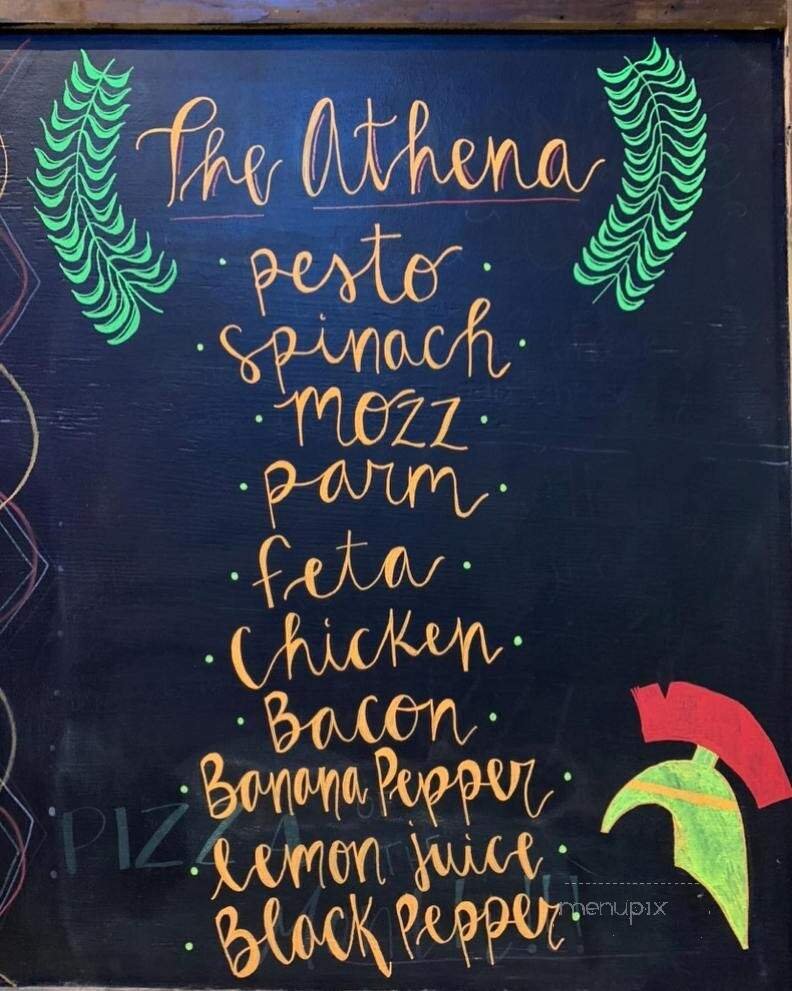 The Athena
pesto
spinach
mozz
parm
feta
Chicken
Bacon
Banana Pepper
lemon juice
Black Pepper
PIZZA
menupix